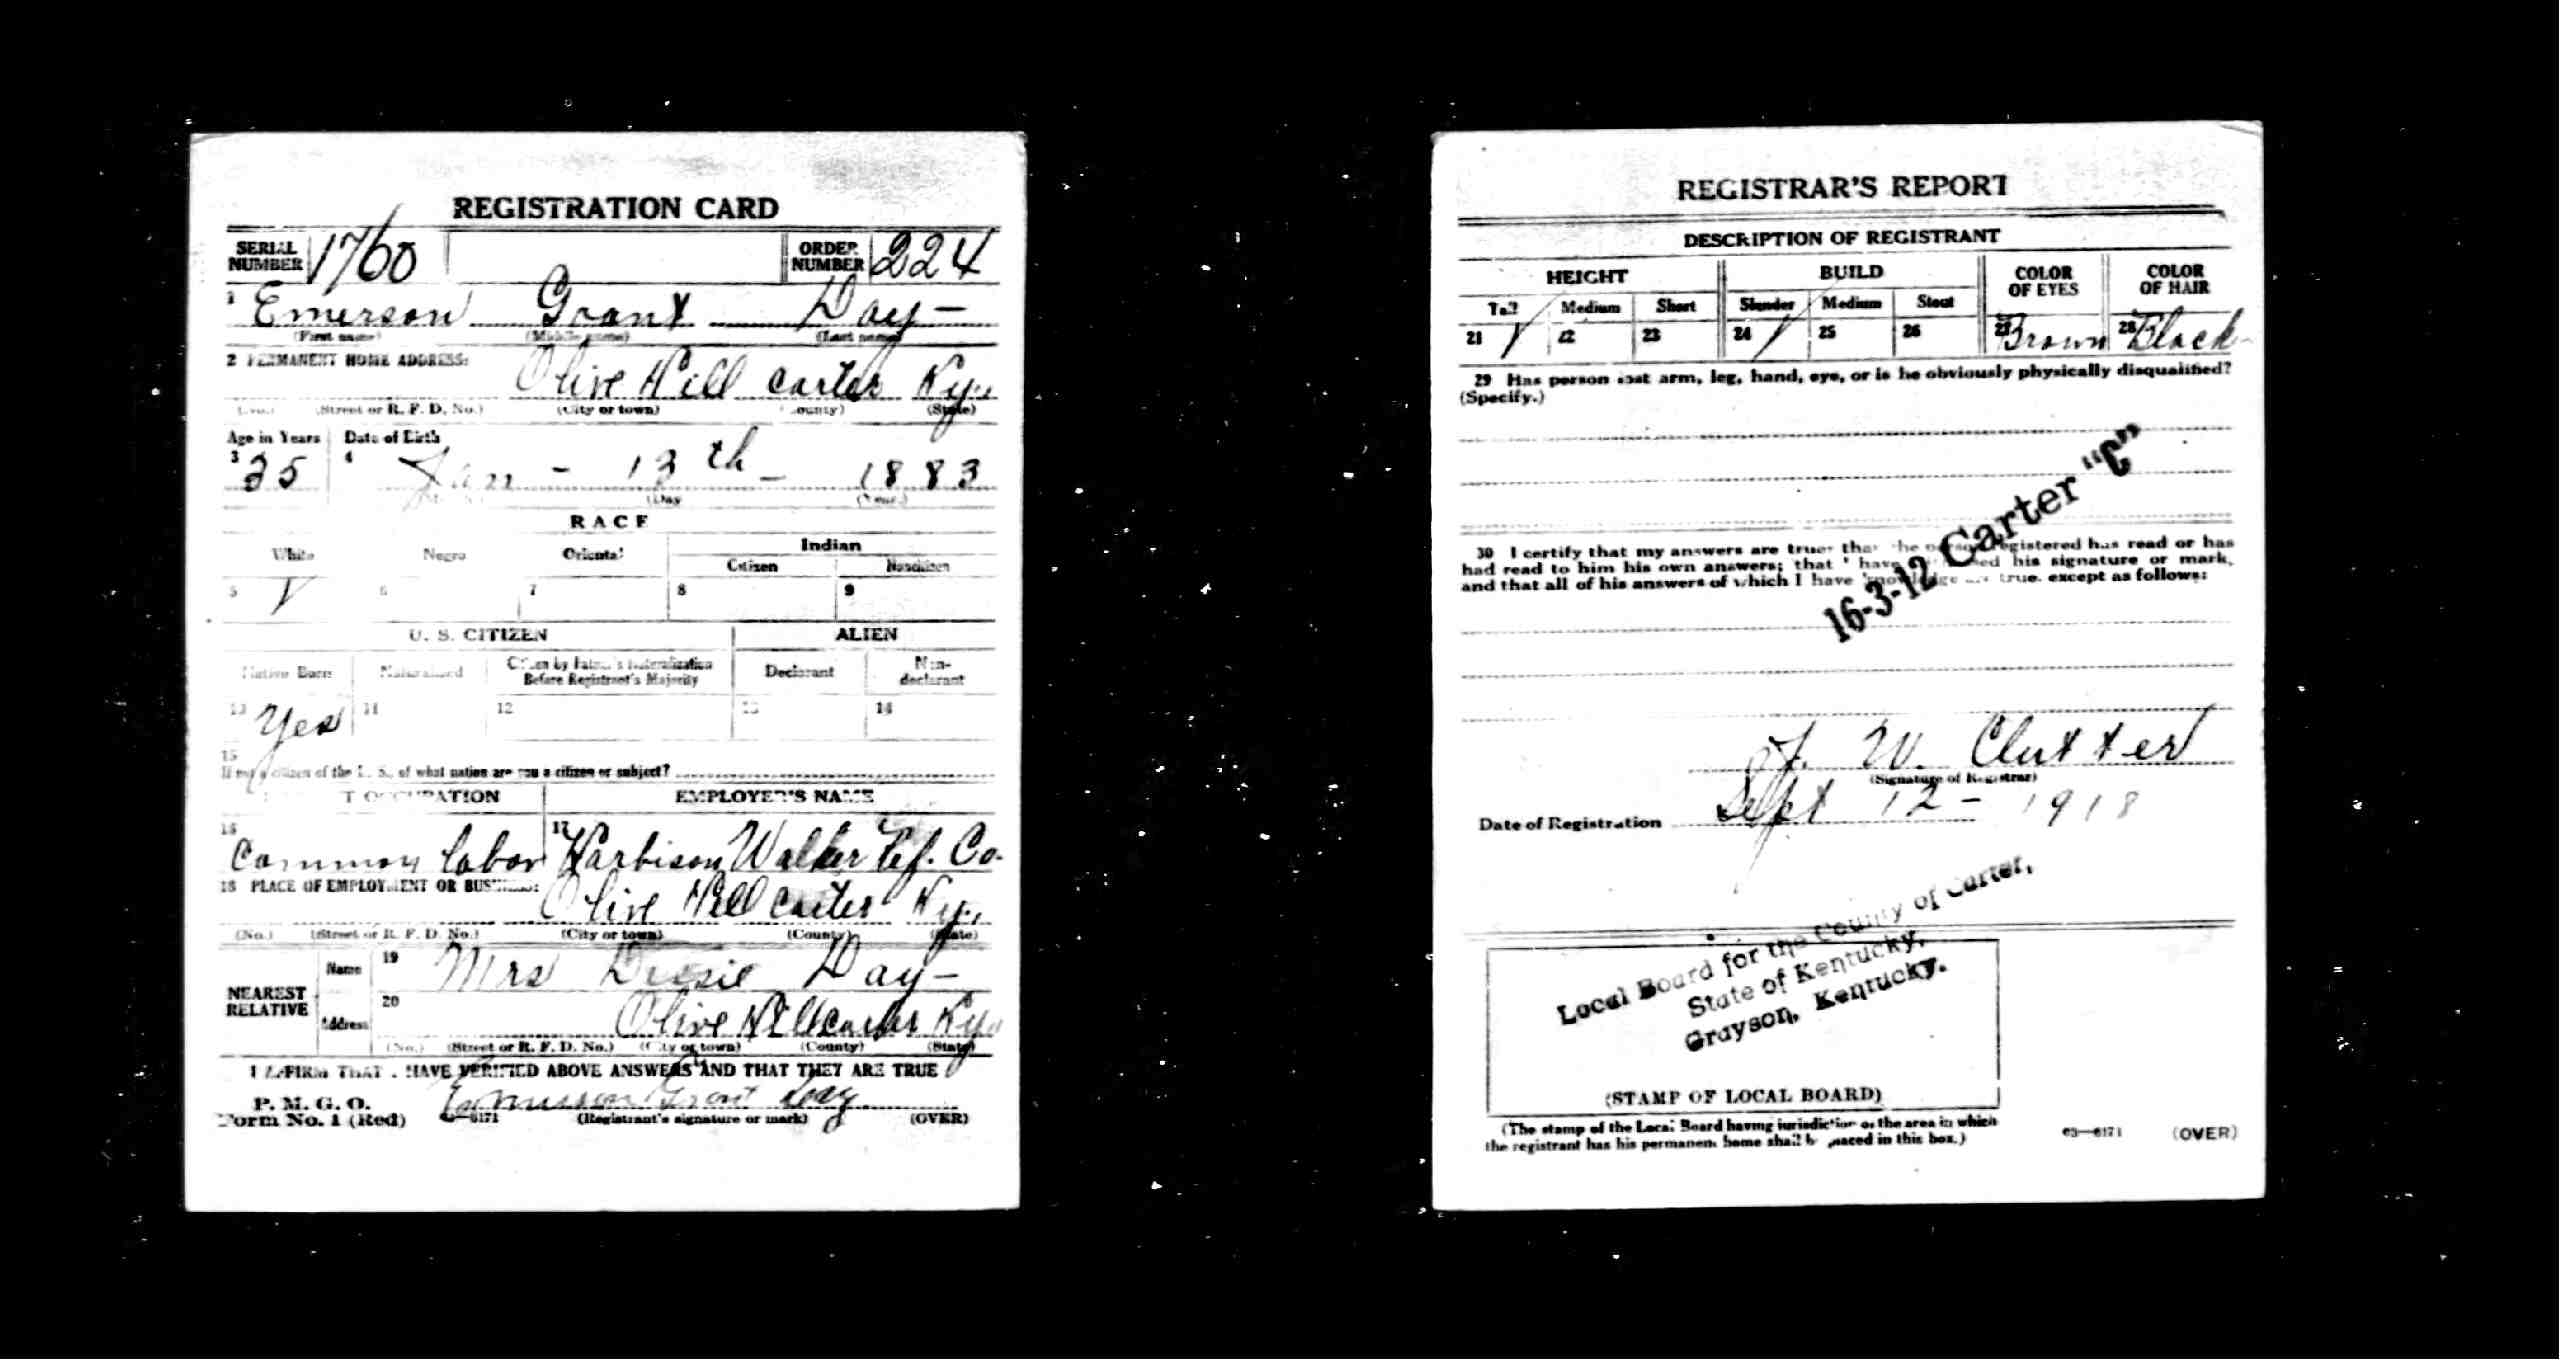 REGISTRATION CARD
SERIAL NUMBER 1760 ORDER NUMBER 224
1 Emerson Grant Day-
(First name) (Middle name) (Last name)
2 PERMANENT HOME ADDRESS:
Olive Hill Carter Ky.,
(No.) (Street or R. F. D. No.) (City or town) (County) (State)
Age in Years Date of Birth
3 35 4 Jan - 13th - 1883
(Day (Year)
RACE
White Negro Oriental Indian
Citizen Noncitizen
5 6 7 8 9
U. S. CITIZEN ALIEN
Native Born Naturalized Citizen by Father's Naturalization Before Registrant's Majority Declarant Non-declarant
10 Yes 11 12 13 14
15
If not a citizen of the U. S., of what nation are you a citizen or subject?
T OCCUPATION EMPLOYER'S NAME
16 Common labor 17 Harbison Walker Ref. Co.
18 PLACE OF EMPLOYMENT OR BUSINESS:
Olive Hill Carter Ky.,
(No.) (Street or R. F. D. No.) (City or town) (County) (State)
NEAREST RELATIVE
Name 19 Mrs Day-
Address 20 Olive Hill Carter Ky.
(No.) (Street or R. F. D. No.) (City or town) (County) (State)
I AFFIRM THAT I HAVE VERIFIED ABOVE ANSWERS AND THAT THEY ARE TRUE
P. M. G. O.
Form No. 1 (Red) Grant Day
6171 (Registrant's signature or mark) (OVER)
REGISTRAR'S REPORT
DESCRIPTION OF REGISTRANT
HEIGHT BUILD COLOR OF EYES COLOR OF HAIR
Tall Medium Short Slender Medium Stout
21 22 23 24 25 26 27 Brown 28 Black
29 Has person lost arm, leg, hand, eye, or is he obviously physically disqualified?
(Specify.)
16-3-12 Carter "C"
30 I certify that my answers are true; that the person registered has read or has
had read to him his own answers; that I have witnessed his signature or mark,
and that all of his answers of which I have knowledge are true, except as follows:
W. Clutter
(Signature of Registrar)
Date of Registration Sept 12 - 1918
Local Board for the County of Carter,
State of Kentucky,
Grayson, Kentucky.
(STAMP OF LOCAL BOARD)
(The stamp of the Local Board having jurisdiction of the area in which
the registrant has his permanent home shall be placed in this box.)
03-6171 (OVER)